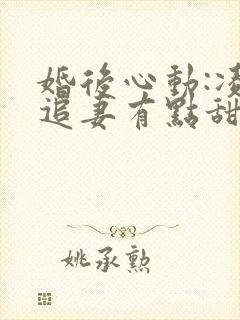 婚後心動:凌
追妻有點甜
姚承勲